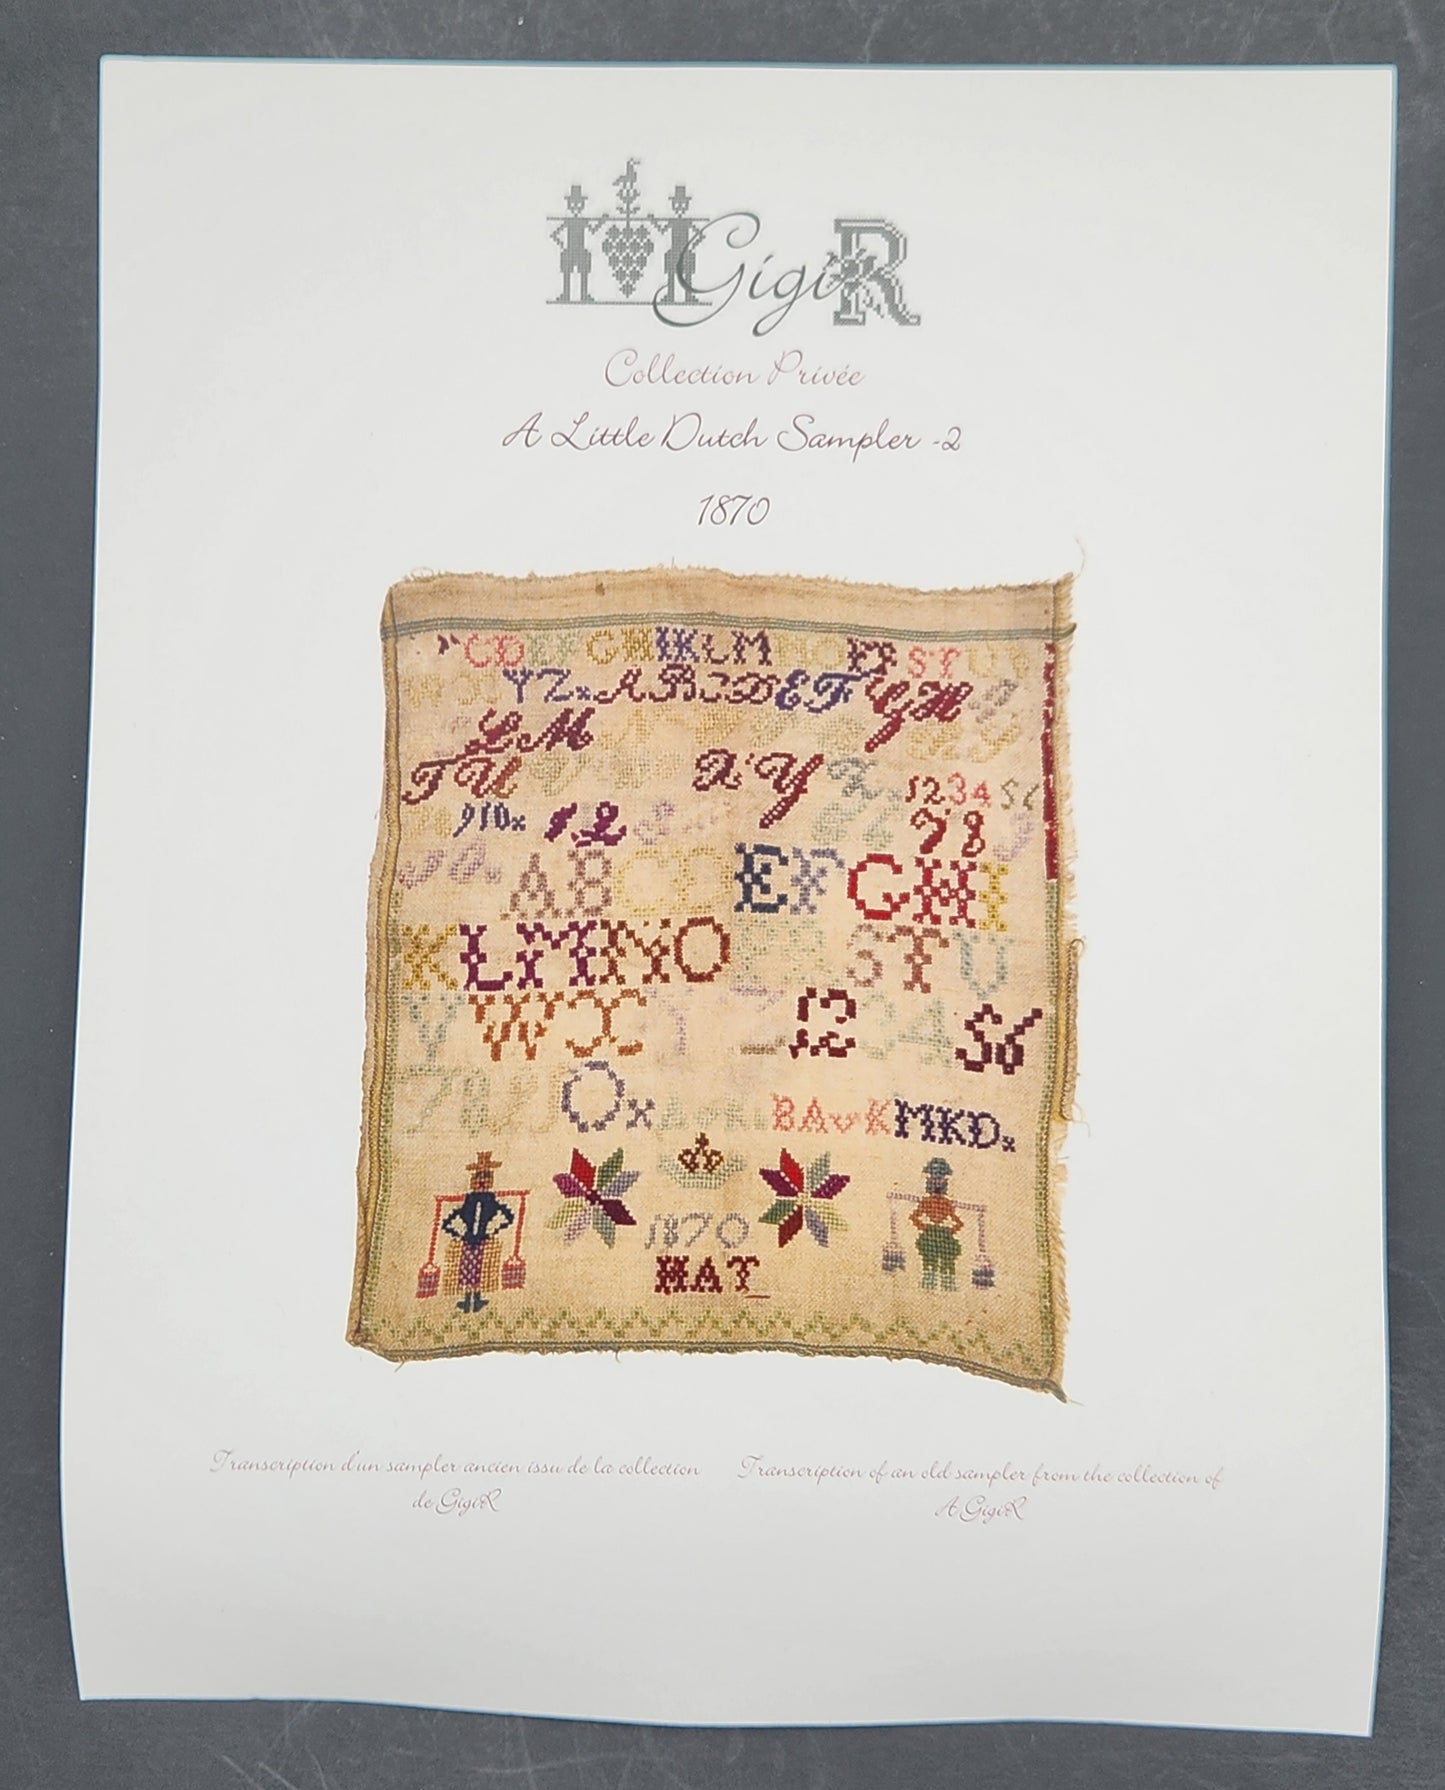 GigiR
Collection Privée
A Little Dutch Sampler -2
1870
CDEFGHIKLM NO P ST U
YZxABCDEFGH
LM
TU XY 123456
910x 12 3 78
ABCDEFGHI
KLMNO P STU
VWX Y Z 123456
78 Ox BAvKMKDx
1870
HAT
Transcription d'un sampler ancien issu de la collection
de GigiR
Transcription of an old sampler from the collection of
A GigiR